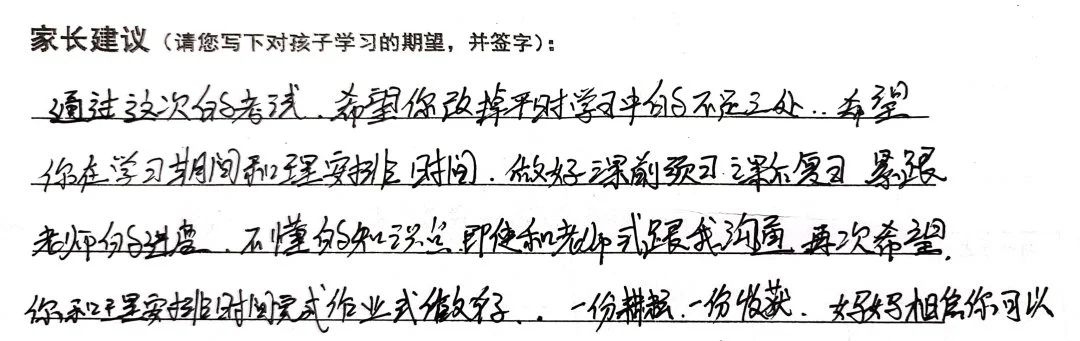 家长建议（请您写下对孩子学习的期望，并签字）：
通过这次的考试．希望你改掉平时学习中的不足之处．．希望
你在学习期间和理安排时间．做好课前预习课后复习 紧跟
老师的进度．不懂的知识点．即使和老师或跟我沟通．再次希望．
你和理安排时间完式作业或做好．．一份耕耘．一份收获．妈妈相信你可以